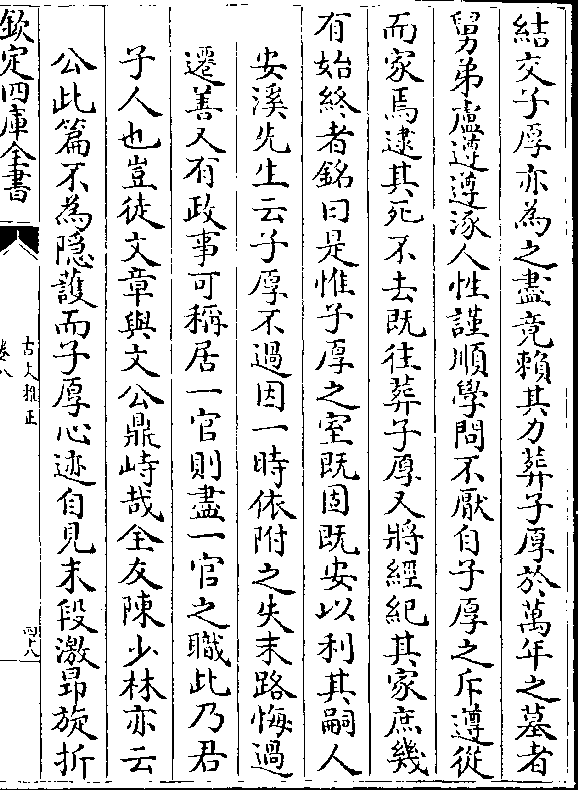 結交子厚亦為之盡竟賴其力葬子厚於萬年之墓者
舅弟盧遵遵涿人性謹順學問不厭自子厚之斥遵從
而家焉逮其死不去既往葬子厚又將經紀其家庶幾
有始終者銘曰是惟子厚之室既固既安以利其嗣人
安溪先生云子厚不過因一時依附之失末路悔過
遷善又有政事可稱居一官則盡一官之職此乃君
子人也豈徒文章與文公鼎峙哉全友陳少林亦云
公此篇不為隠䕶而子厚心迹自見末段激昻旋折
欽定四庫全書
古文雅正
卷八
四十八